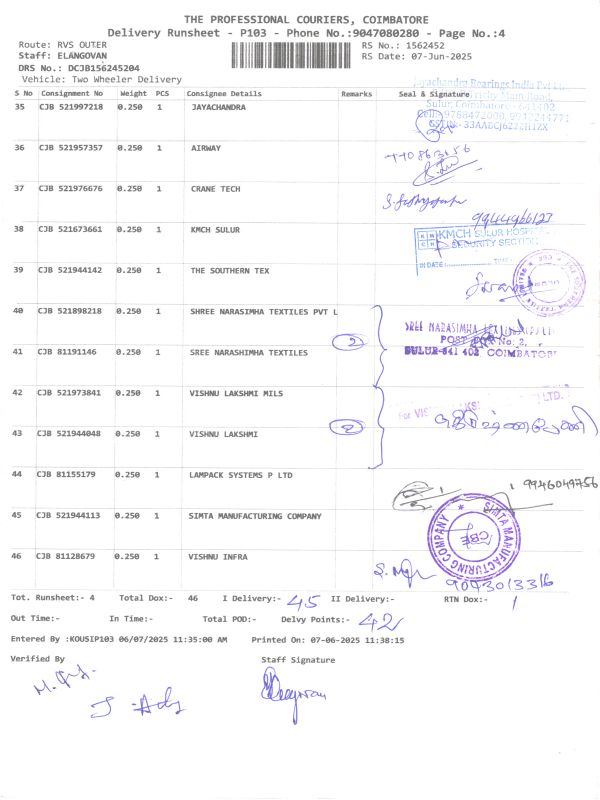 THE PROFESSIONAL COURIERS, COIMBATORE
Delivery Runsheet - P103 - Phone No.:9047080280 - Page No.:4
Route: RVS OUTER
RS No.: 1562452
Staff: ELANGOVAN
RS Date: 07-Jun-2025
DRS No.: DCJB156245204
Vehicle: Two Wheeler Delivery
S No Consignment No Weight PCS Consignee Details Remarks Seal & Signature
35 CJB 521997218 0.250 1 JAYACHANDRA
Jayachandra Bearings India Pvt
Trichy Main Road,
Sulur, Coimbatore - 641402
36 CJB 521957357 0.250 1 AIRWAY
37 CJB 521976676 0.250 1 CRANE TECH
9944966123
38 CJB 521673661 0.250 1 KMCH SULUR
KMCH SULUR HOSPITAL
SECURITY SECTION
IN DATE: TIME
39 CJB 521944142 0.250 1 THE SOUTHERN TEX
40 CJB 521898218 0.250 1 SHREE NARASIMHA TEXTILES PVT L
SREE NARASIMHA TEXTILES
2
POST BOX No: 2,
41 CJB 81191146 0.250 1 SREE NARASHIMHA TEXTILES
SULUR-641 402 COIMBATORE
42 CJB 521973841 0.250 1 VISHNU LAKSHMI MILS
For VISHNU LAKSHMI LTD.
2
43 CJB 521944048 0.250 1 VISHNU LAKSHMI
44 CJB 81155179 0.250 1 LAMPACK SYSTEMS P LTD
9946049756
45 CJB 521944113 0.250 1 SIMTA MANUFACTURING COMPANY
SIMTA MANUFACTURING COMPANY
CBE
46 CJB 81128679 0.250 1 VISHNU INFRA
9043013316
Tot. Runsheet:- 4 Total Dox:- 46 I Delivery:- 45 II Delivery:- RTN Dox:- 1
Out Time:- In Time:- Total POD:- Delvy Points:- 42
Entered By :KOUSIP103 06/07/2025 11:35:00 AM Printed On: 07-06-2025 11:38:15
Verified By Staff Signature